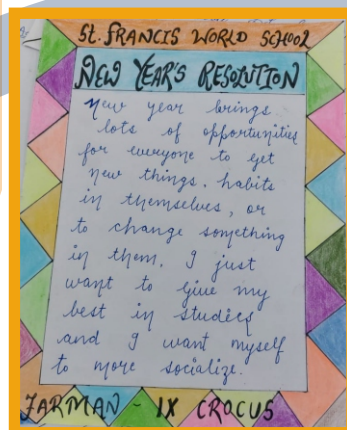 St. FRANCIS WORLD SCHOOL
NEW YEAR'S RESOLUTION
New year brings
lots of opportunities
for everyone to get
new things, habits
in themselves, or
to change something
in them. I just
want to give my
best in studies
and I want myself
to more socialize.
FARMAN - IX CROCUS